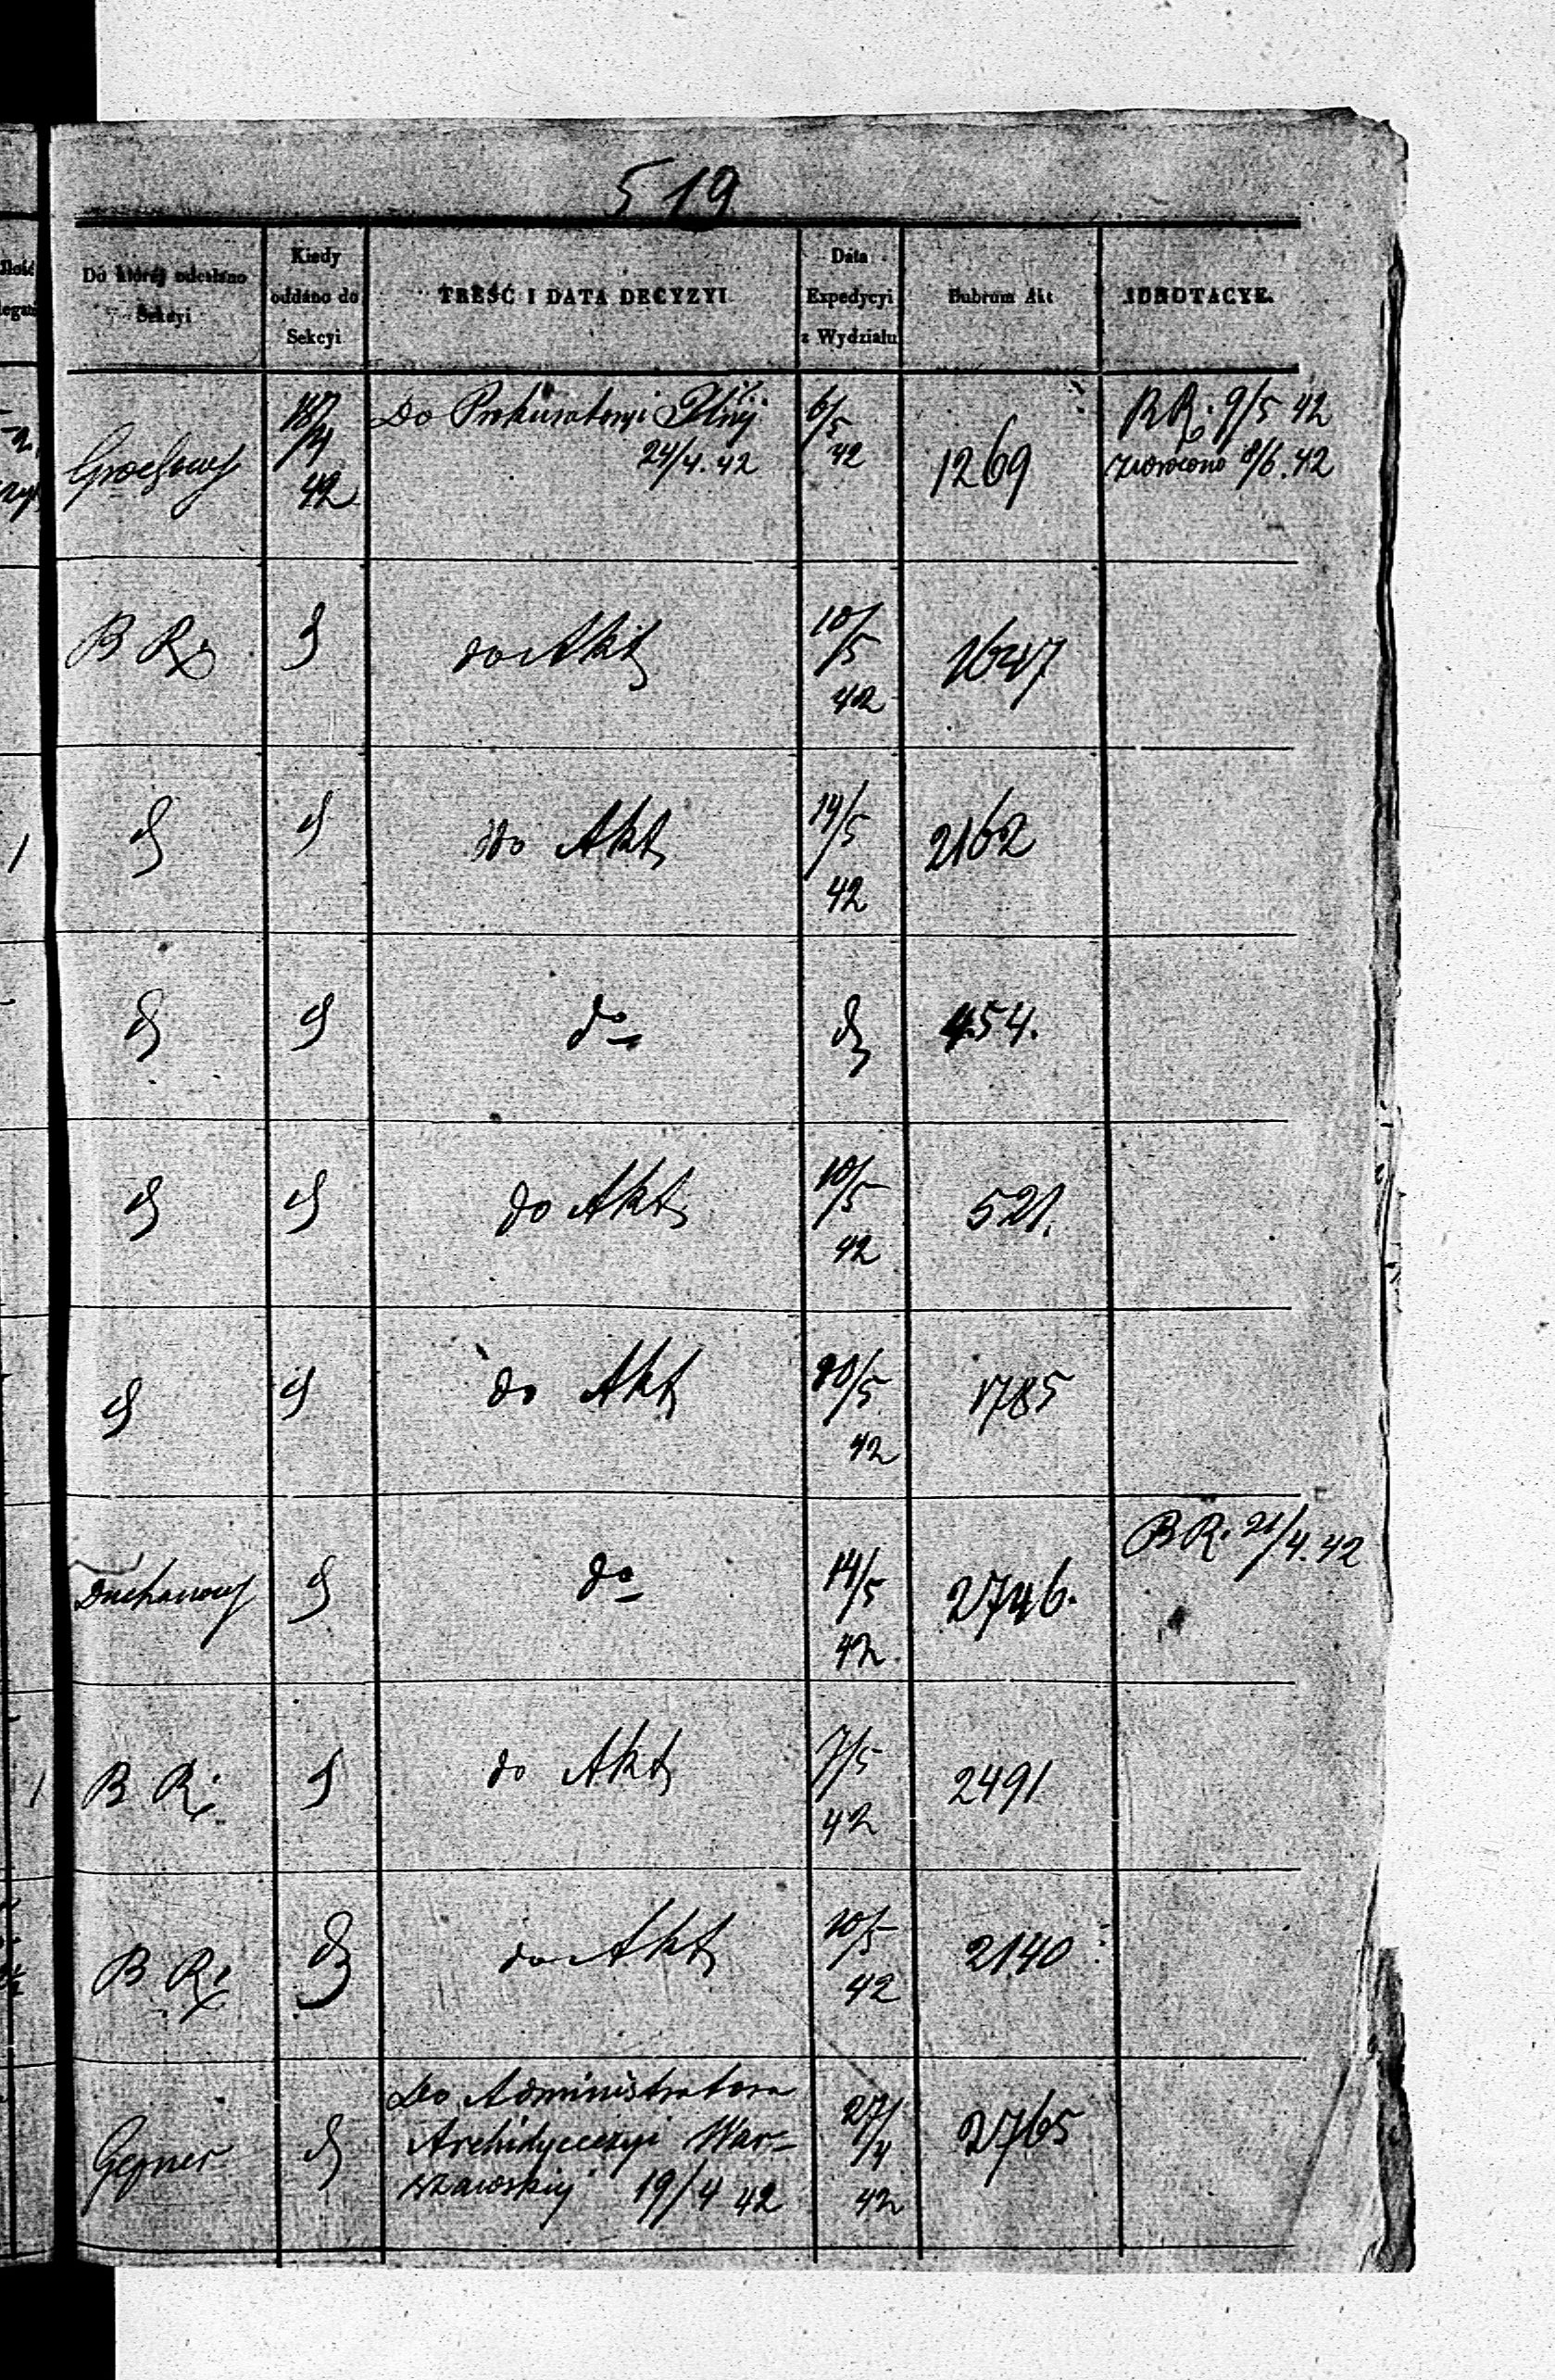 519
Do której odesłano Sekcyi
Kiedy oddano do Sekcyi
TREŚĆ I DATA DECYZYI
Data Expedycyi z Wydziału
Rubrum Akt
ADNOTACYE.
18/4 42
Do Prokuratoryi
24/4. 42
6/5 42
1269
BR. 9/5 42
zwrócono 8/6. 42
B R. d do Akt 10/5 42 1647
d d do Akt 14/5 42 2162
d d do d 454.
d d do Akt 10/5 42 521.
d d do Akt 20/5 42 1785
d do 14/5 42. 2746. BR. 21/4. 42
B R. d do Akt 7/5 42 2491
B R. d do Akt 10/5 42 2140
Gepner d
Do Administratora
Archidyecezyi War-
szawskiej 19/4 42
27/4 42
2765